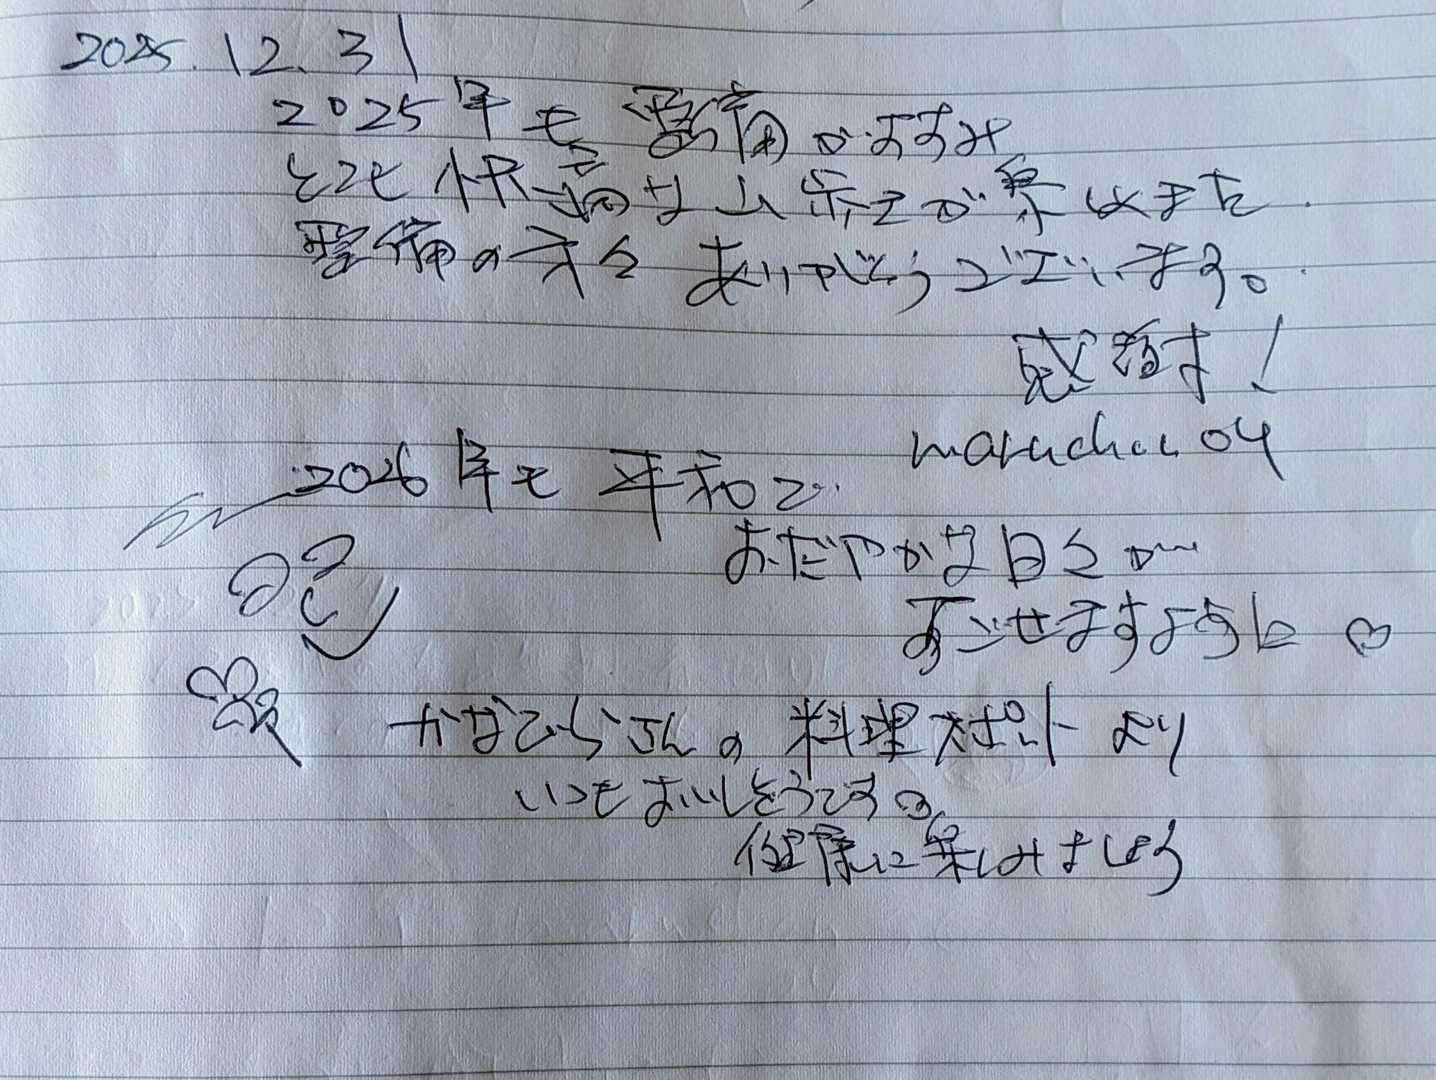 2025.12.31
2025年も整備がすすみ
とても快適な山歩きが楽しめました.
整備の方々 ありがとうございます。
感謝です!
maruchan04
2026年も平和で
おだやかな日々が〜
すごせますように♡
かなでらさんの料理スポットより
いつもおいしそうですね
健康に楽しみましょう